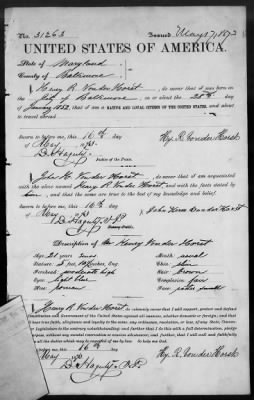 No. 31263 Issued May 17, 1873
UNITED STATES OF AMERICA.
State of Maryland
County of Baltimore
I, Henry R. Von der Horst, born in the
City of Baltimore, on or about the 28th day
of January 1852, that I am a NATIVE AND LOYAL CITIZEN OF THE UNITED STATES, and about
to travel abroad.
Sworn to before me, this 16th day
of May 1873
Hy. R. Vonder Horst
Justice of the Peace.
I, John H. Von der Horst, am acquainted
with the above named Henry R. Von der Horst and with the facts stated by
him are true to the best of my knowledge and belief.
Sworn to before me, this 16th day
of May 1873
John H. Vonder Horst
Description of Mr. Henry Vonder Horst
Age: 21 years
Mouth: usual
Stature: 5 feet, inches, Eng.
Forehead: moderate high
Hair: brown
Eyes: light blue
Complexion: fair
Nose:
Face: rather small
I, Henry R. Von der Horst do solemnly swear that I will support, protect and defend
the Constitution and Government of the United States against all enemies, whether domestic or foreign; and that
I will bear true faith, allegiance and loyalty to the same, any ordinance, resolution, or law of any State, Convention
or Legislature to the contrary notwithstanding; and further, that I do this with a full determination, pledge
and purpose, without any mental reservation or evasion whatsoever; and, further, that I will well and faithfully perform
all the duties which may be required of me by law. So help me God.
Sworn to before me, this 16th day
of May 1873
Hy. R. Vonder Horst